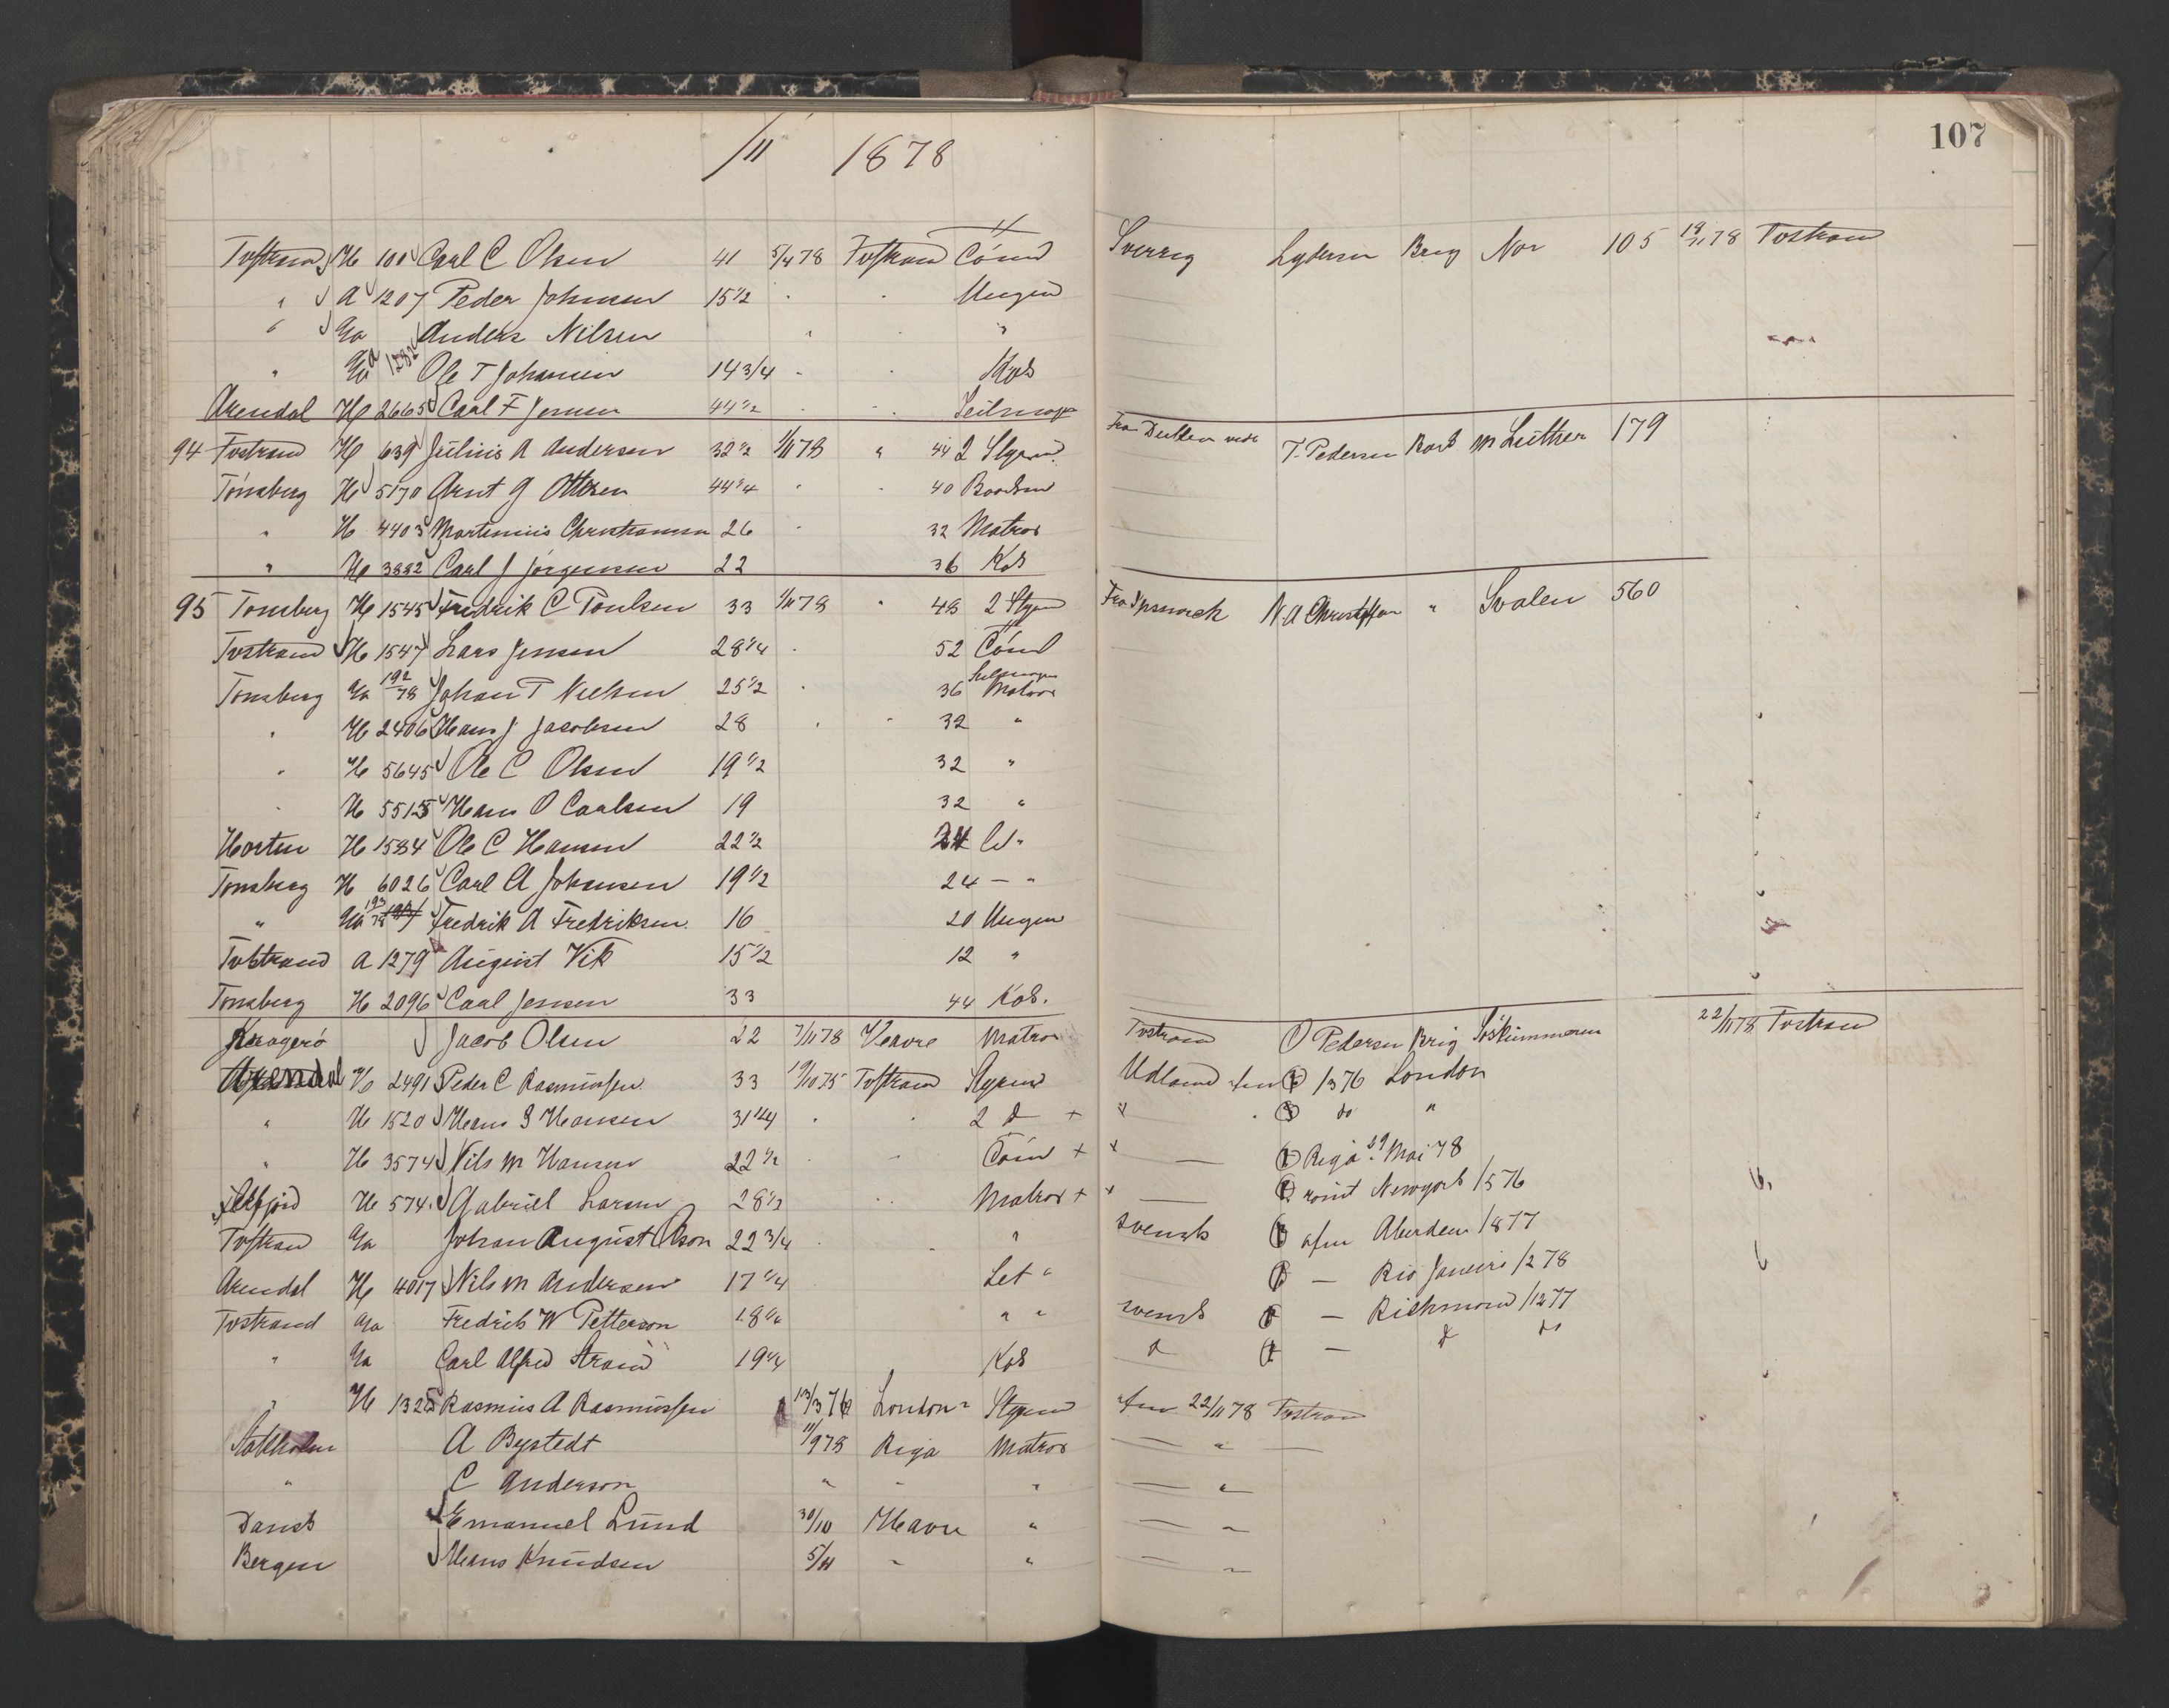 107
/11 1878
Tvstrand H 100 Carl C Olsen 41 5/4 78 Tvstrand Tömd Sverrig Lydersen Brig Nor 105 19/11 78 Tvstrand
" A 1207 Peder Johnsen 15 1/2 " " Ungm
" Ua Anders Nilsen " " "
" Ua A 1282 Ole T Johansen 14 3/4 " Kok
Arendal H 2665 Carl F Jensen 44 1/2 " " Seilmager
94 Tvstrand H 639 Julius A Andersen 32 1/2 1/11 78 " 44 2 Styrmd Fra T. Pedersen Bark M Luther 179
Tönsberg H 5170 Arnt G Ottesen 44 1/4 " " 40 Baadsm
" H 4403 Martinius Christiansen 26 " 32 Matros
" H 3882 Carl J Jörgensen 22 36 Kok
95 Tonsberg H 1545 Fredrik C Poulsen 33 1/11 78 " 48 2 Styrmd Fra N. A Christoffersen " Svalen 560
Tvstrand H 1547 Lars Jensen 28 1/4 " 52 Tömd
Tonsberg Ua 192/78 Johan T Nielsen 25 1/2 " 36 Seilmager Matros
" H 2406 Hans J Jacobsen 28 " " 32 "
" H 5645 Ole C Olsen 19 1/2 32 "
" H 5515 Hans O Carlsen 19 32 "
Horten H 1584 Ole C Hansen 22 1/2 24 L "
Tonsberg H 6026 Carl A Johansen 19 1/2 24 — "
" Ua 193/78 Fredrik A Fredriksen 16 20 Ungm
Tvstrand A 1279 August Vik 15 1/2 12 "
Tonsberg H 2096 Carl Jensen 33 44 Kok.
Kragerö Jacob Olsen 22 7/11 78 Heavre Matros Tvstrand O Pedersen Brig Söskummeren 22/11 78 Tvstrand
Arendal H 2491 Peder C Rasmussen 33 19/10 75 Tvstrand Styrmd Udland afm 1376 London
" H 1520 Hans S Hansen 31 1/4 " " 2 d + + " do "
" H 3574 Nils M Hansen 22 1/2 " " Tömd + + — Riga 29 Mai 78
H 574 Gabriel Larsen 28 1/2 " " Matros + + — römt Newyork /5 76
Tvstrand Ua Johan August Olson 22 3/4 " " " svensk afm Aberdeen /8 77
Arendal H 4017 Nils M Andersen 17 1/4 Let " — Rio Janeiro /2 78
Tvstrand Ua Fredrik W Petterson 18 1/4 " " svensk — Richmond /12 77
" Ua Carl Alfred Strand 19 1/4 Kok d — d do
" H 1325 Rasmus A Rasmussen 13/3 76 London Styrmd afm 22/11 78 Tvstrand
Stokholm A Bystedt 11/9 78 Riga Matros — " —
" C Anderson " " " — " —
Dansk Emanuel Lund 30/10 Havre " — " —
Bergen Hans Knudsen 5/11 " " — " —